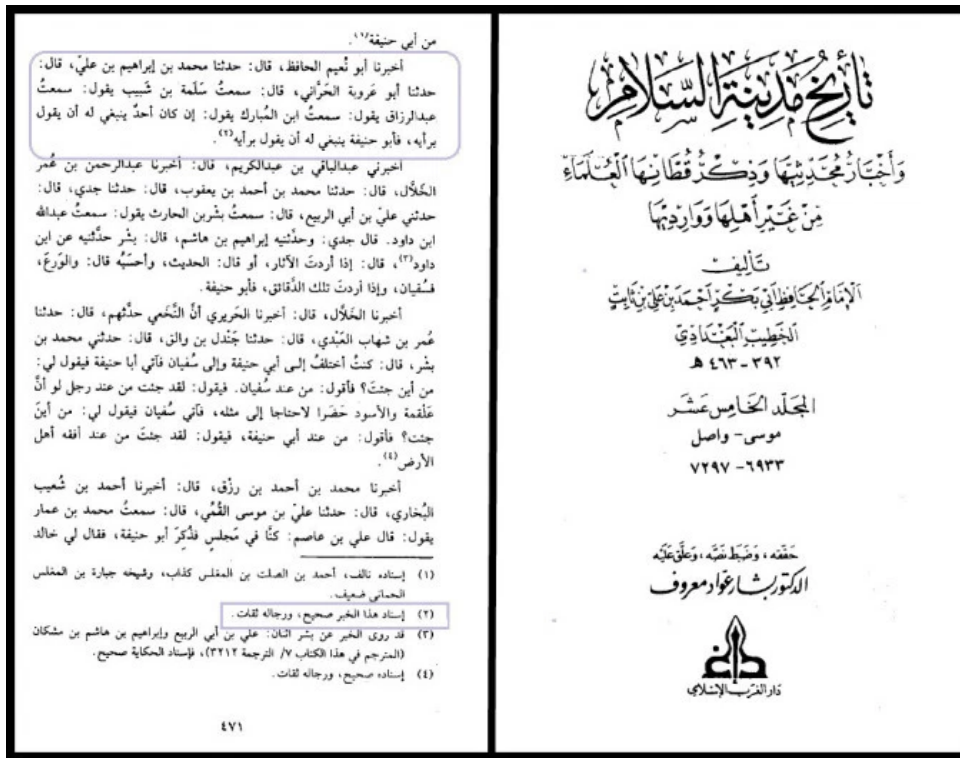 تاريخ مدينة السلام
وأخبار محدثيها وذكر قطانها العلماء
من غير أهلها ووارديها
تأليف
الإمام الحافظ أبي بكر أحمد بن علي بن ثابت
الخطيب البغدادي
٣٩٢ - ٤٦٣ هـ
المجلد الخامس عشر
موسى - واصل
٦٩٣٣ - ٧٢٩٧
حققه، وضبط نصه، وعلق عليه
الدكتور بشار عواد معروف
دار الغرب الإسلامي
من أبي حنيفة(١).
أخبرنا أبو نُعيم الحافظ، قال: حدثنا محمد بن إبراهيم بن عليّ، قال:
حدثنا أبو عَروبة الحَرَّاني، قال: سمعتُ سَلَمة بن شَبيب يقول: سمعتُ
عبدالرزاق يقول: سمعتُ ابن المُبارك يقول: إن كان أحدٌ ينبغي له أن يقول
برأيه، فأبو حنيفة ينبغي له أن يقول برأيه(٢).
أخبرني عبدالباقي بن عبدالكريم، قال: أخبرنا عبدالرحمن بن عُمر
الخَلَّال، قال: حدثنا محمد بن أحمد بن يعقوب، قال: حدثنا جدي، قال:
حدثني عليّ بن أبي الربيع، قال: سمعتُ بشر بن الحارث يقول: سمعتُ عبدالله
ابن داود. قال جدي: وحدَّثنيه إبراهيم بن هاشم، قال: بشْر حدَّثنيه عن ابن
داود(٣)، قال: إذا أردتَ الآثار، أو قال: الحديث، وأحسَبُه قال: والوَرعَ،
فسُفيان، وإذا أردتَ تلك الدَّقائق، فأبو حنيفة.
أخبرنا الخَلَّال، قال: أخبرنا الحَريري أنَّ النَّخَعي حدَّثهم، قال: حدثنا
عُمر بن شهاب العَبْدي، قال: حدثنا جَنْدل بن والق، قال: حدثني محمد بن
بشْر، قال: كنتُ أختلفُ إلى أبي حنيفة وإلى سُفيان فآتي أبا حنيفة فيقول لي:
من أين جئتَ؟ فأقول: من عند سُفيان. فيقول: لقد جئت من عند رجل لو أنَّ
عَلْقمة والأسود حَضَرا لاحتاجا إلى مثله، فآتي سُفيان فيقول لي: من أينَ
جئت؟ فأقول: من عند أبي حنيفة، فيقول: لقد جئتَ من عند أفقه أهل
الأرض(٤).
أخبرنا محمد بن أحمد بن رزْق، قال: أخبرنا أحمد بن شُعيب
البُخاري، قال: حدثنا عليّ بن موسى القُمِّي، قال: سمعتُ محمد بن عمار
يقول: قال علي بن عاصم: كنَّا في مَجلسٍ فذُكِرَ أبو حنيفة، فقال لي خالد
(١) إسناده تالف، أحمد بن الصلت بن المغلس كذاب، وشيخه جبارة بن المغلس
الحماني ضعيف.
(٢) إسناد هذا الخبر صحيح، ورجاله ثقات.
(٣) قد روى الخبر عن بشر اثنان: علي بن أبي الربيع وإبراهيم بن هاشم بن مشكان
(المترجم في هذا الكتاب ٧/ الترجمة ٣٢١٢)، فإسناد الحكاية صحيح.
(٤) إسناده صحيح، ورجاله ثقات.
٤٧١